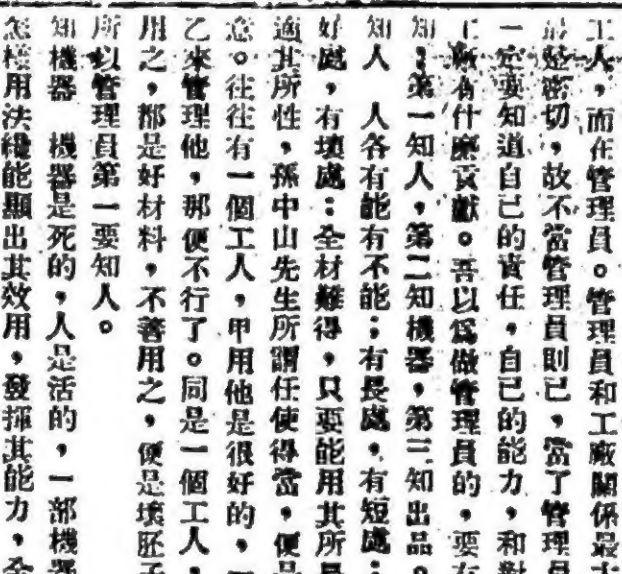 工人，而在管理員。管理員和工廠關係最
最密切，故不當管理員則已，當了管理員
一定要知道自己的責任，自己的能力，和對
工廠有什麽貢獻。吾以爲做管理員的，要有
知：第一知人，第二知機器，第三知出品。
知人　人各有能有不能；有長處，有短處；
好處，有壞處：全材難得，只要能用其所長
適其所性，孫中山先生所謂任使得當，便是
意。往往有一個工人，甲用他是很好的，一
乙來管理他，那便不行了。同是一個工人，
用之，都是好材料，不善用之，便是壞胚子
所以管理員第一要知人。
知機器　機器是死的，人是活的，一部機器
怎樣用法纔能顯出其效用，發揮其能力，全